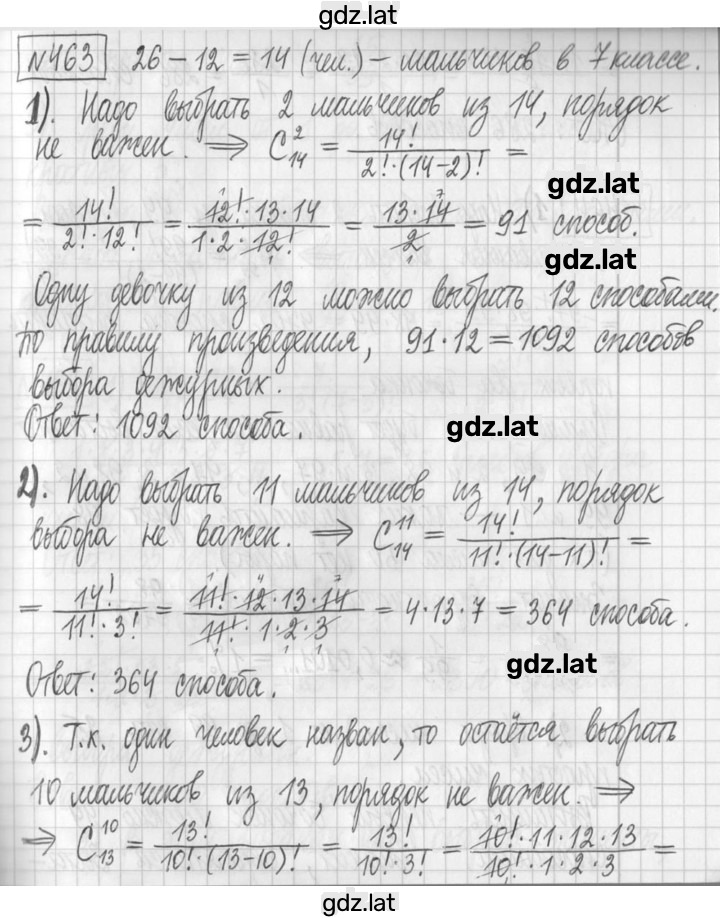 gdz.lat
№463 26 − 12 = 14 (чел.) – мальчиков в 7 классе.
1). Надо выбрать 2 мальчиков из 14, порядок
не важен. ⟹ C₁₄² = 14! / (2!·(14−2)!) =
gdz.lat
= 14! / (2!·12!) = (12!·13·14) / (1·2·12!) = (13·14) / 2 = 91 способ.
gdz.lat
Одну девочку из 12 можно выбрать 12 способами.
По правилу произведения, 91·12 = 1092 способов
выбора дежурных.
Ответ: 1092 способа.
gdz.lat
2). Надо выбрать 11 мальчиков из 14, порядок
выбора не важен. ⟹ C₁₄¹¹ = 14! / (11!·(14−11)!) =
= 14! / (11!·3!) = (11!·12·13·14) / (11!·1·2·3) = 4·13·7 = 364 способа.
gdz.lat
Ответ: 364 способа.
3). Т.к. один человек назван, то остаётся выбрать
10 мальчиков из 13, порядок не важен. ⟹
⟹ C₁₃¹⁰ = 13! / (10!·(13−10)!) = 13! / (10!·3!) = (10!·11·12·13) / (10!·1·2·3) =
gdz.lat